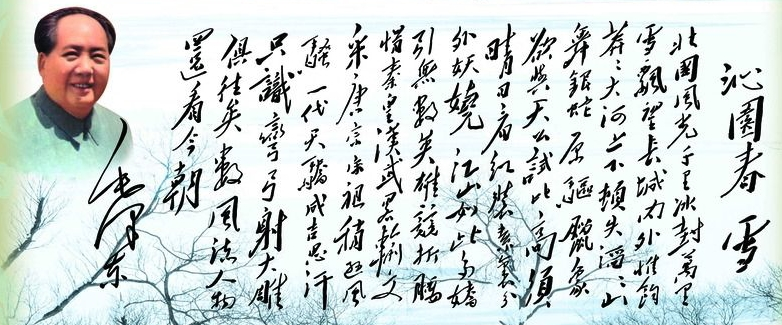 沁園春 雪
北國風光千里冰封萬里
雪飄望長城內外惟餘
莽々大河上下頓失滔々山
舞銀蛇原驅臘象
欲與天公試比高須
晴日看紅裝素裹分
外妖嬈江山如此多嬌
引無數英雄競折腰
惜秦皇漢武略輸文
采唐宗宋祖稍遜風
騷一代天驕成吉思汗
只識彎弓射大雕
俱往矣數風流人物
還看今朝
毛澤東